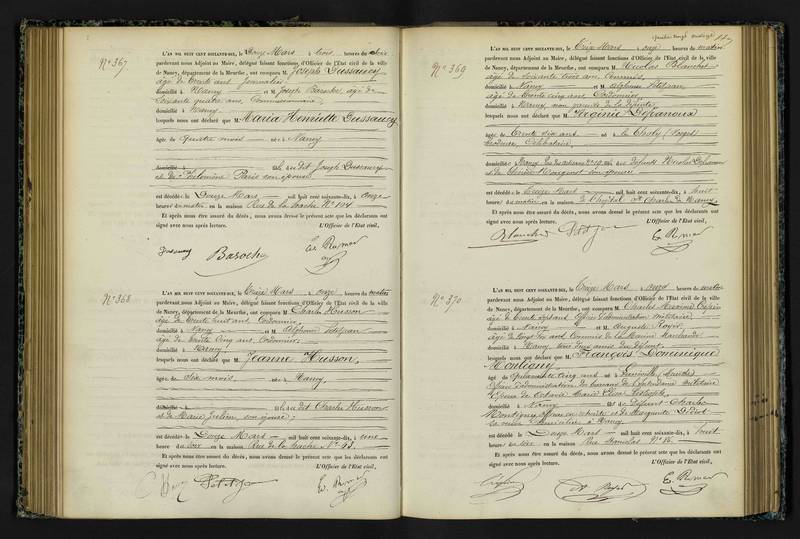 N° 367
L'AN MIL HUIT CENT SOIXANTE-DIX, le Onze Mars à trois heures du soir
pardevant nous Adjoint au Maire, délégué faisant fonctions d'Officier de l'État civil de la ville
de Nancy, département de la Meurthe, ont comparu M. Joseph Dussaucy
âgé de trente ans Journalier
domicilié à Nancy et M. Joseph Baroche, âgé de
Soixante quatre ans, Commissionnaire,
domicilié à Nancy
lesquels nous ont déclaré que M. Maria Henriette Dussaucy
âgée de quatre mois née à Nancy
domicilié à du dit Joseph Dussaucy
et de Philomène Paris son épouse
est décédée le Douze Mars mil huit cent soixante-dix, à onze
heures du matin, en la maison Rue de la hache N° 104
Et après nous être assuré du décès, nous avons dressé le présent acte que les déclarants ont
signé avec nous après lecture. L'Officier de l'État civil,
Baroche
N° 368
L'AN MIL HUIT CENT SOIXANTE-DIX, le Treize Mars à onze heures du matin
pardevant nous Adjoint au Maire, délégué faisant fonctions d'Officier de l'État civil de la ville
de Nancy, département de la Meurthe, ont comparu M. Charles Husson
âgé de trente huit ans Cordonnier
domicilié à Nancy et M. Alphonse Petitjean
âgé de trente cinq ans, Cordonnier
domicilié à Nancy
lesquels nous ont déclaré que M. Jeanne Husson,
âgée de Six mois née à Nancy,
domicilié à du dit Charles Husson
et de Marie Julien, son épouse;
est décédée le Douze Mars mil huit cent soixante-dix, à une
heure du soir en la maison Rue de la hache N° 93.
Et après nous être assuré du décès, nous avons dressé le présent acte que les déclarants ont
signé avec nous après lecture. L'Officier de l'État civil,
Petitjean
N° 369
L'AN MIL HUIT CENT SOIXANTE-DIX, le Treize Mars à onze heures du matin
pardevant nous Adjoint au Maire, délégué faisant fonctions d'Officier de l'État civil de la ville
de Nancy, département de la Meurthe, ont comparu M. Nicolas Blanchet
âgé de Soixante trois ans, Commis,
domicilié à Nancy et M. Alphonse Petitjean
âgé de trente cinq ans, Cordonnier
domicilié à Nancy, non parents de la défunte,
lesquels nous ont déclaré que M. Virginie Defranoux
âgée de trente six ans née à (Vosges)
Brodeuse, Célibataire,
domiciliée Nancy
est décédée le Treize Mars mil huit cent soixante-dix, à huit
heures du matin en la maison l'hôpital St Charles de Nancy
Et après nous être assuré du décès, nous avons dressé le présent acte que les déclarants ont
signé avec nous après lecture. L'Officier de l'État civil,
Blanchet Petitjean
N° 370
L'AN MIL HUIT CENT SOIXANTE-DIX, le Treize Mars à onze heures du matin
pardevant nous Adjoint au Maire, délégué faisant fonctions d'Officier de l'État civil de la ville
de Nancy, département de la Meurthe, ont comparu M. Charles
âgé de trente ans, Officier d'administration militaire
domicilié à Nancy et M. Auguste Royer
âgé de vingt six ans Commis de la Marine Marchande
domicilié à Nancy, tous deux amis du défunt
lesquels nous ont déclaré que M. François Dominique
Montigny
âgé de quarante cinq ans né à (Meurthe)
Officier d'administration des bureaux de l'Intendance militaire
Époux de Octavie Marie Elisa
domicilié à Nancy fils de défunt Charles
Montigny et de Marguerite Didiot
est décédé le Douze Mars mil huit cent soixante-dix, à huit
heures du soir en la maison Rue Stanislas N° 15.
Et après nous être assuré du décès, nous avons dressé le présent acte que les déclarants ont
signé avec nous après lecture. L'Officier de l'État civil,
A. Royer